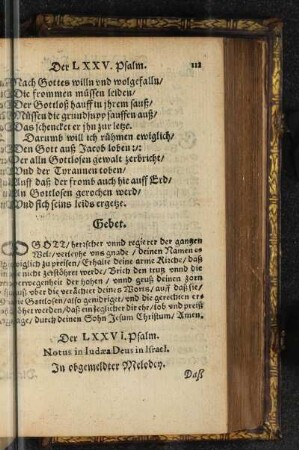 Der LXXV. Psalm. 112
Nach Gottes willn vnd wolgefalln/
Die frommen müssen leiden/
Der Gottloß hauff in jhrem sauß/
Müssen die grundsupp sauffen auß/
Das schencket er jhn zur letze.
Darumb will ich rühmen ewiglich/
Den Gott auß Jacob loben :/:
Der alln Gottlosen gewalt zerbricht/
Vnd der Tyrannen toben/
Auff daß der fromb auch hie auff Erd/
An Gottlosen gerochen werd/
Vnd sich seins leids ergetz.
Gebet.
O GOTT/ herrscher vnnd regierer der gantzen
Welt/ verleyhe vns gnade/ deinen Namen
zu preisen/ Erhalte deine arme Kirche/ daß
nicht zerstöhret werde/ Brich den trutz vnnd die
verwegenheit der hohen/ vnnd geuß deinen zorn
vber die verächter deines Worts/ auff daß sie/
die Gottlosen/ also genidriget/ vnd die gerechten
erhöhet werden/ daß ehr/ lob vnd preiß
durch deinen Sohn Jesum Christum/ Amen.
Der LXXVI. Psalm.
Notus in Iudæa Deus in Israel.
In obgemeldter Melodey.
Daß